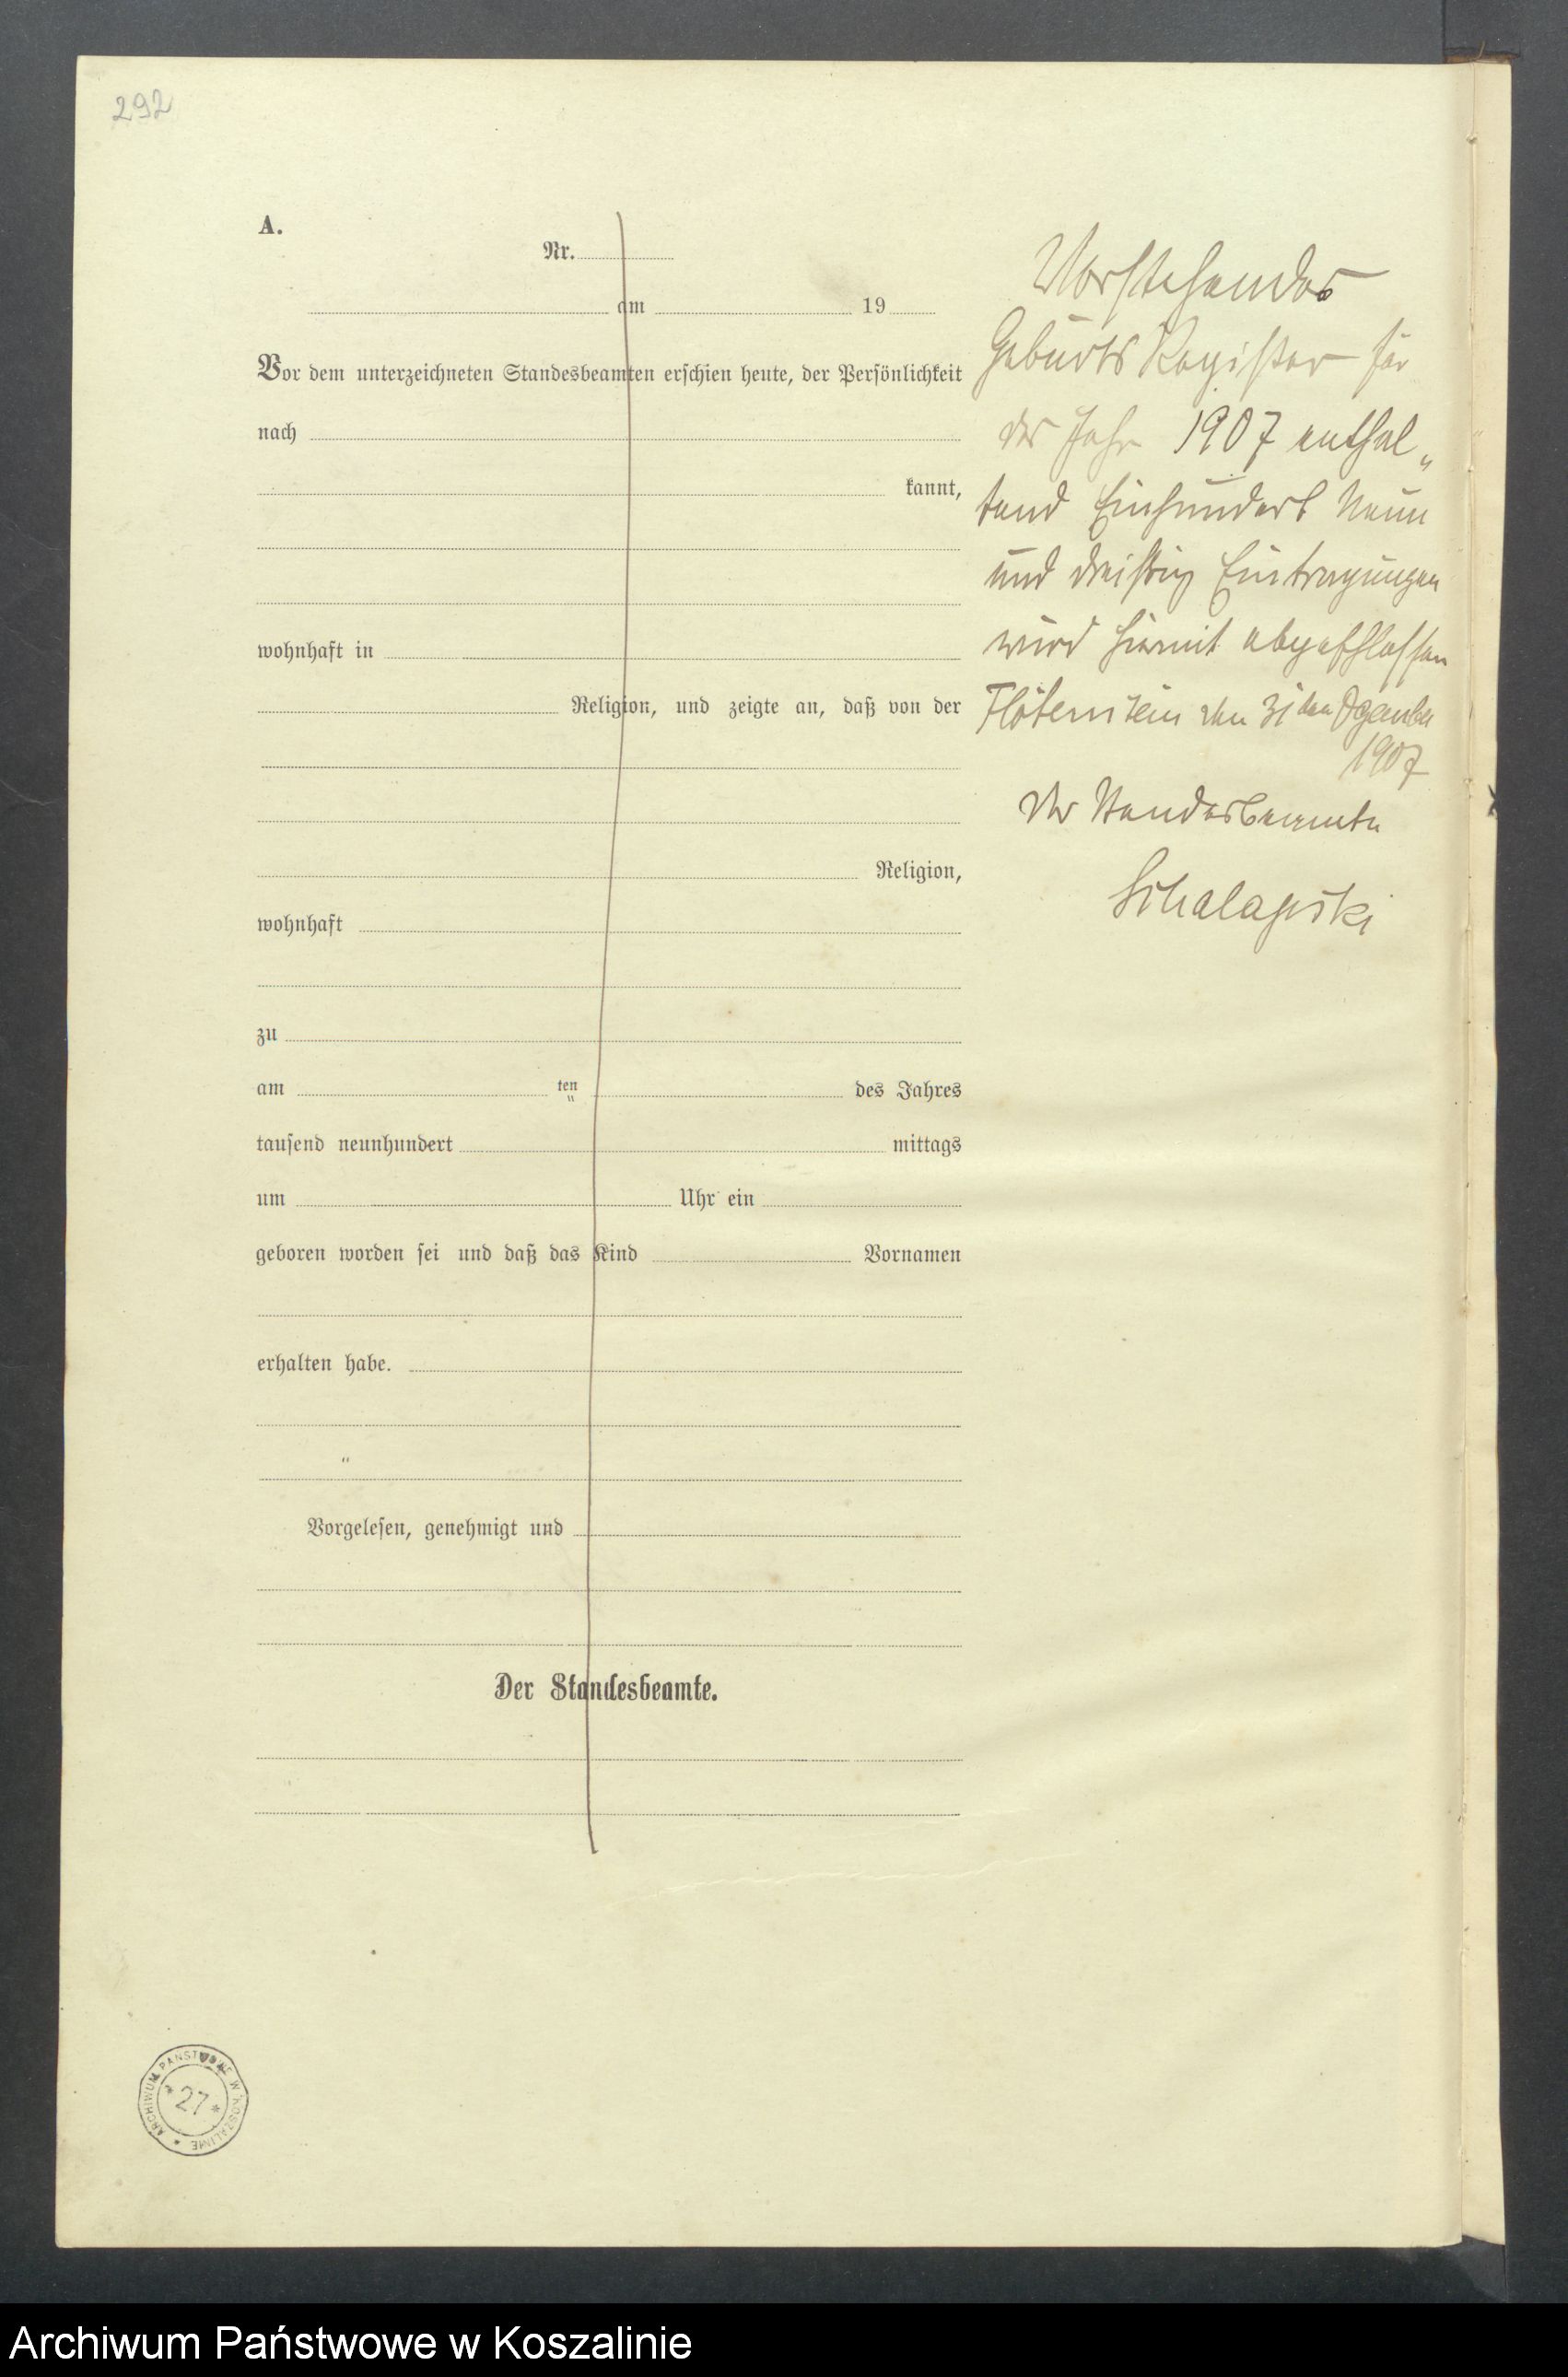 292
A.
Nr.
am 19
Vor dem unterzeichneten Standesbeamten erschien heute, der Persönlichkeit
nach
kannt,
wohnhaft in
Religion, und zeigte an, daß von der
Religion,
wohnhaft
zu
am ten des Jahres
tausend neunhundert mittags
um Uhr ein
geboren worden sei und daß das Kind Vornamen
erhalten habe.
Vorgelesen, genehmigt und
Der Standesbeamte.
Vorstehendes
Geburts Register für
das Jahr 1907 enthal„
tend Einhundert Neun
und dreißig Eintragungen
wird hiermit abgeschlossen
Flötenstein den 31ten Dezember
1907
Der Standesbeamte
ARCHIWUM PAŃSTWOWE W KOSZALINIE
* 27 *
Archiwum Państwowe w Koszalinie